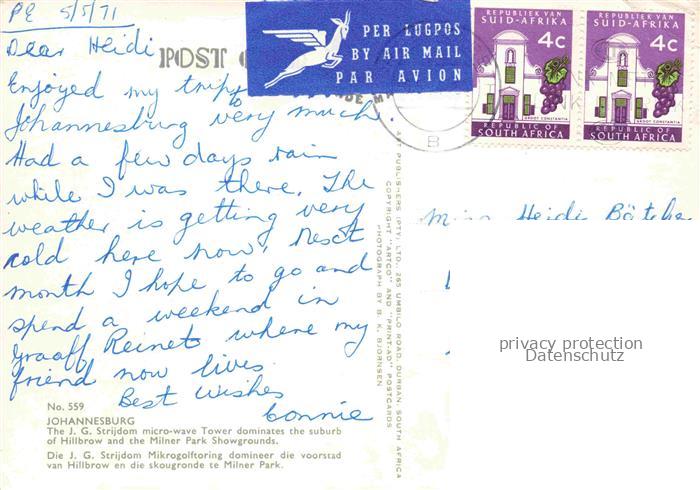 PE 5/5/71
Dear Heidi
Enjoyed my trip to
Johannesburg very much.
Had a few days rain
while I was there. The
weather is getting very
cold here now. Next
month I hope to go and
spend a weekend in
Graaff Reinet where my
friend now lives.
Best Wishes
Connie
No. 559
JOHANNESBURG
The J. G. Strijdom micro-wave Tower dominates the suburb
of Hillbrow and the Milner Park Showgrounds.
Die J. G. Strijdom Mikrogolftoring domineer die voorstad
van Hillbrow en die skougronde te Milner Park.
POST C
PER LUGPOS
BY AIR MAIL
PAR AVION
REPUBLIEK VAN
SUID-AFRIKA
4c
GROOT CONSTANTIA
REPUBLIC OF
SOUTH AFRICA
REPUBLIEK VAN
SUID-AFRIKA
4c
GROOT CONSTANTIA
REPUBLIC OF
SOUTH AFRICA
B
ART PUBLISHERS (PTY.) LTD., 265 UMBILO ROAD, DURBAN, SOUTH AFRICA
COPYRIGHT "ARTCO" AND "PRINT-AD" POSTCARDS
PHOTOGRAPH BY B. K. BJORNSEN
Miss Heidi
privacy protection
Datenschutz